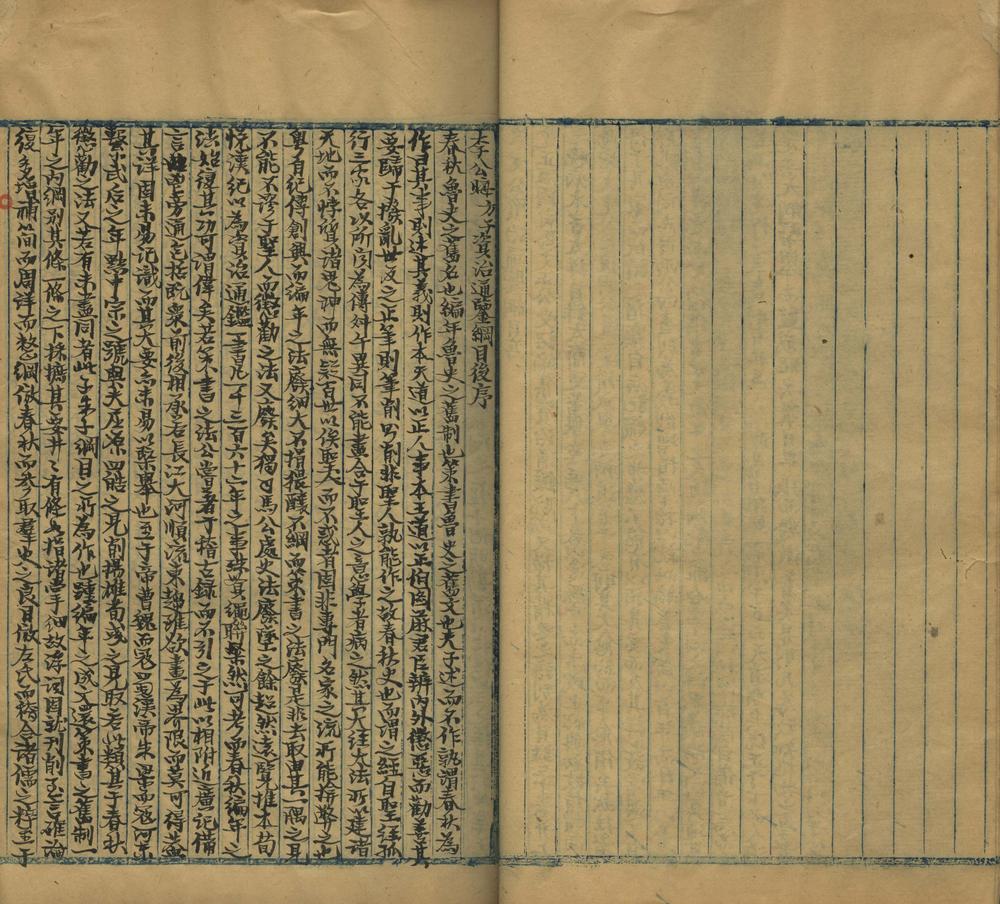 李公晦方子資治通鑑綱目後序
春秋魯史之舊名也編年魯史之舊制也策書魯史之舊文也夫子述而不作孰謂春秋為
作曰其事則述其義則作本天道以正人事本王道以正伯圖嚴君臣辨內外懲惡而勸善其
要歸于撥亂世反之正筆則筆削則削非聖人孰能作之故春秋史也而謂之經自聖經孤
行三家各以所聞為傳舛午異同不能盡合于聖人之意學者病之然其大經大法所以建諸
天地而不悖質諸鬼神而無疑百世以俟聖人而不惑者固非專門名家之流所能揜弊之也
粵自紀傳創興而編年之法廢細大不捐猥釀不綱而策書之法廢是非去取由其一隅之見
不能不謬于聖人而懲勸之法又廢矣獨司馬公處史法廢墜之餘超然遠覽推本荀
悅漢紀以為資治通鑑一書凡一千三百六十二年之事珠貫繩聯粲然可考而春秋編年之
法始復其功可謂偉矣若策書之法公嘗著于稽古錄而不引之于此以相附近廣記備
言曲暢旁通包括既眾前後相承若長江大河順流東趨雖欲畫為界限而莫可得蓋
其詳固未易記識而其大要亦未易以槩舉也至于帝曹魏而寇蜀漢帝朱梁而寇河東
繫武后之年黜中宗之號與夫屈原四皓之見削揚雄荀彧之見取若此類其于春秋
懲勸之法又若有未盡同者此子朱子綱目之所為作也踵編年之成文還策書之舊制一
年之內綱別其條一條之下採摭其要井〻有條如指諸掌細故浮詞因就刊削至言確論
復多增補簡而周詳而整綱倣春秋而參取羣史之良目倣左氏而稽合諸儒之粹至于